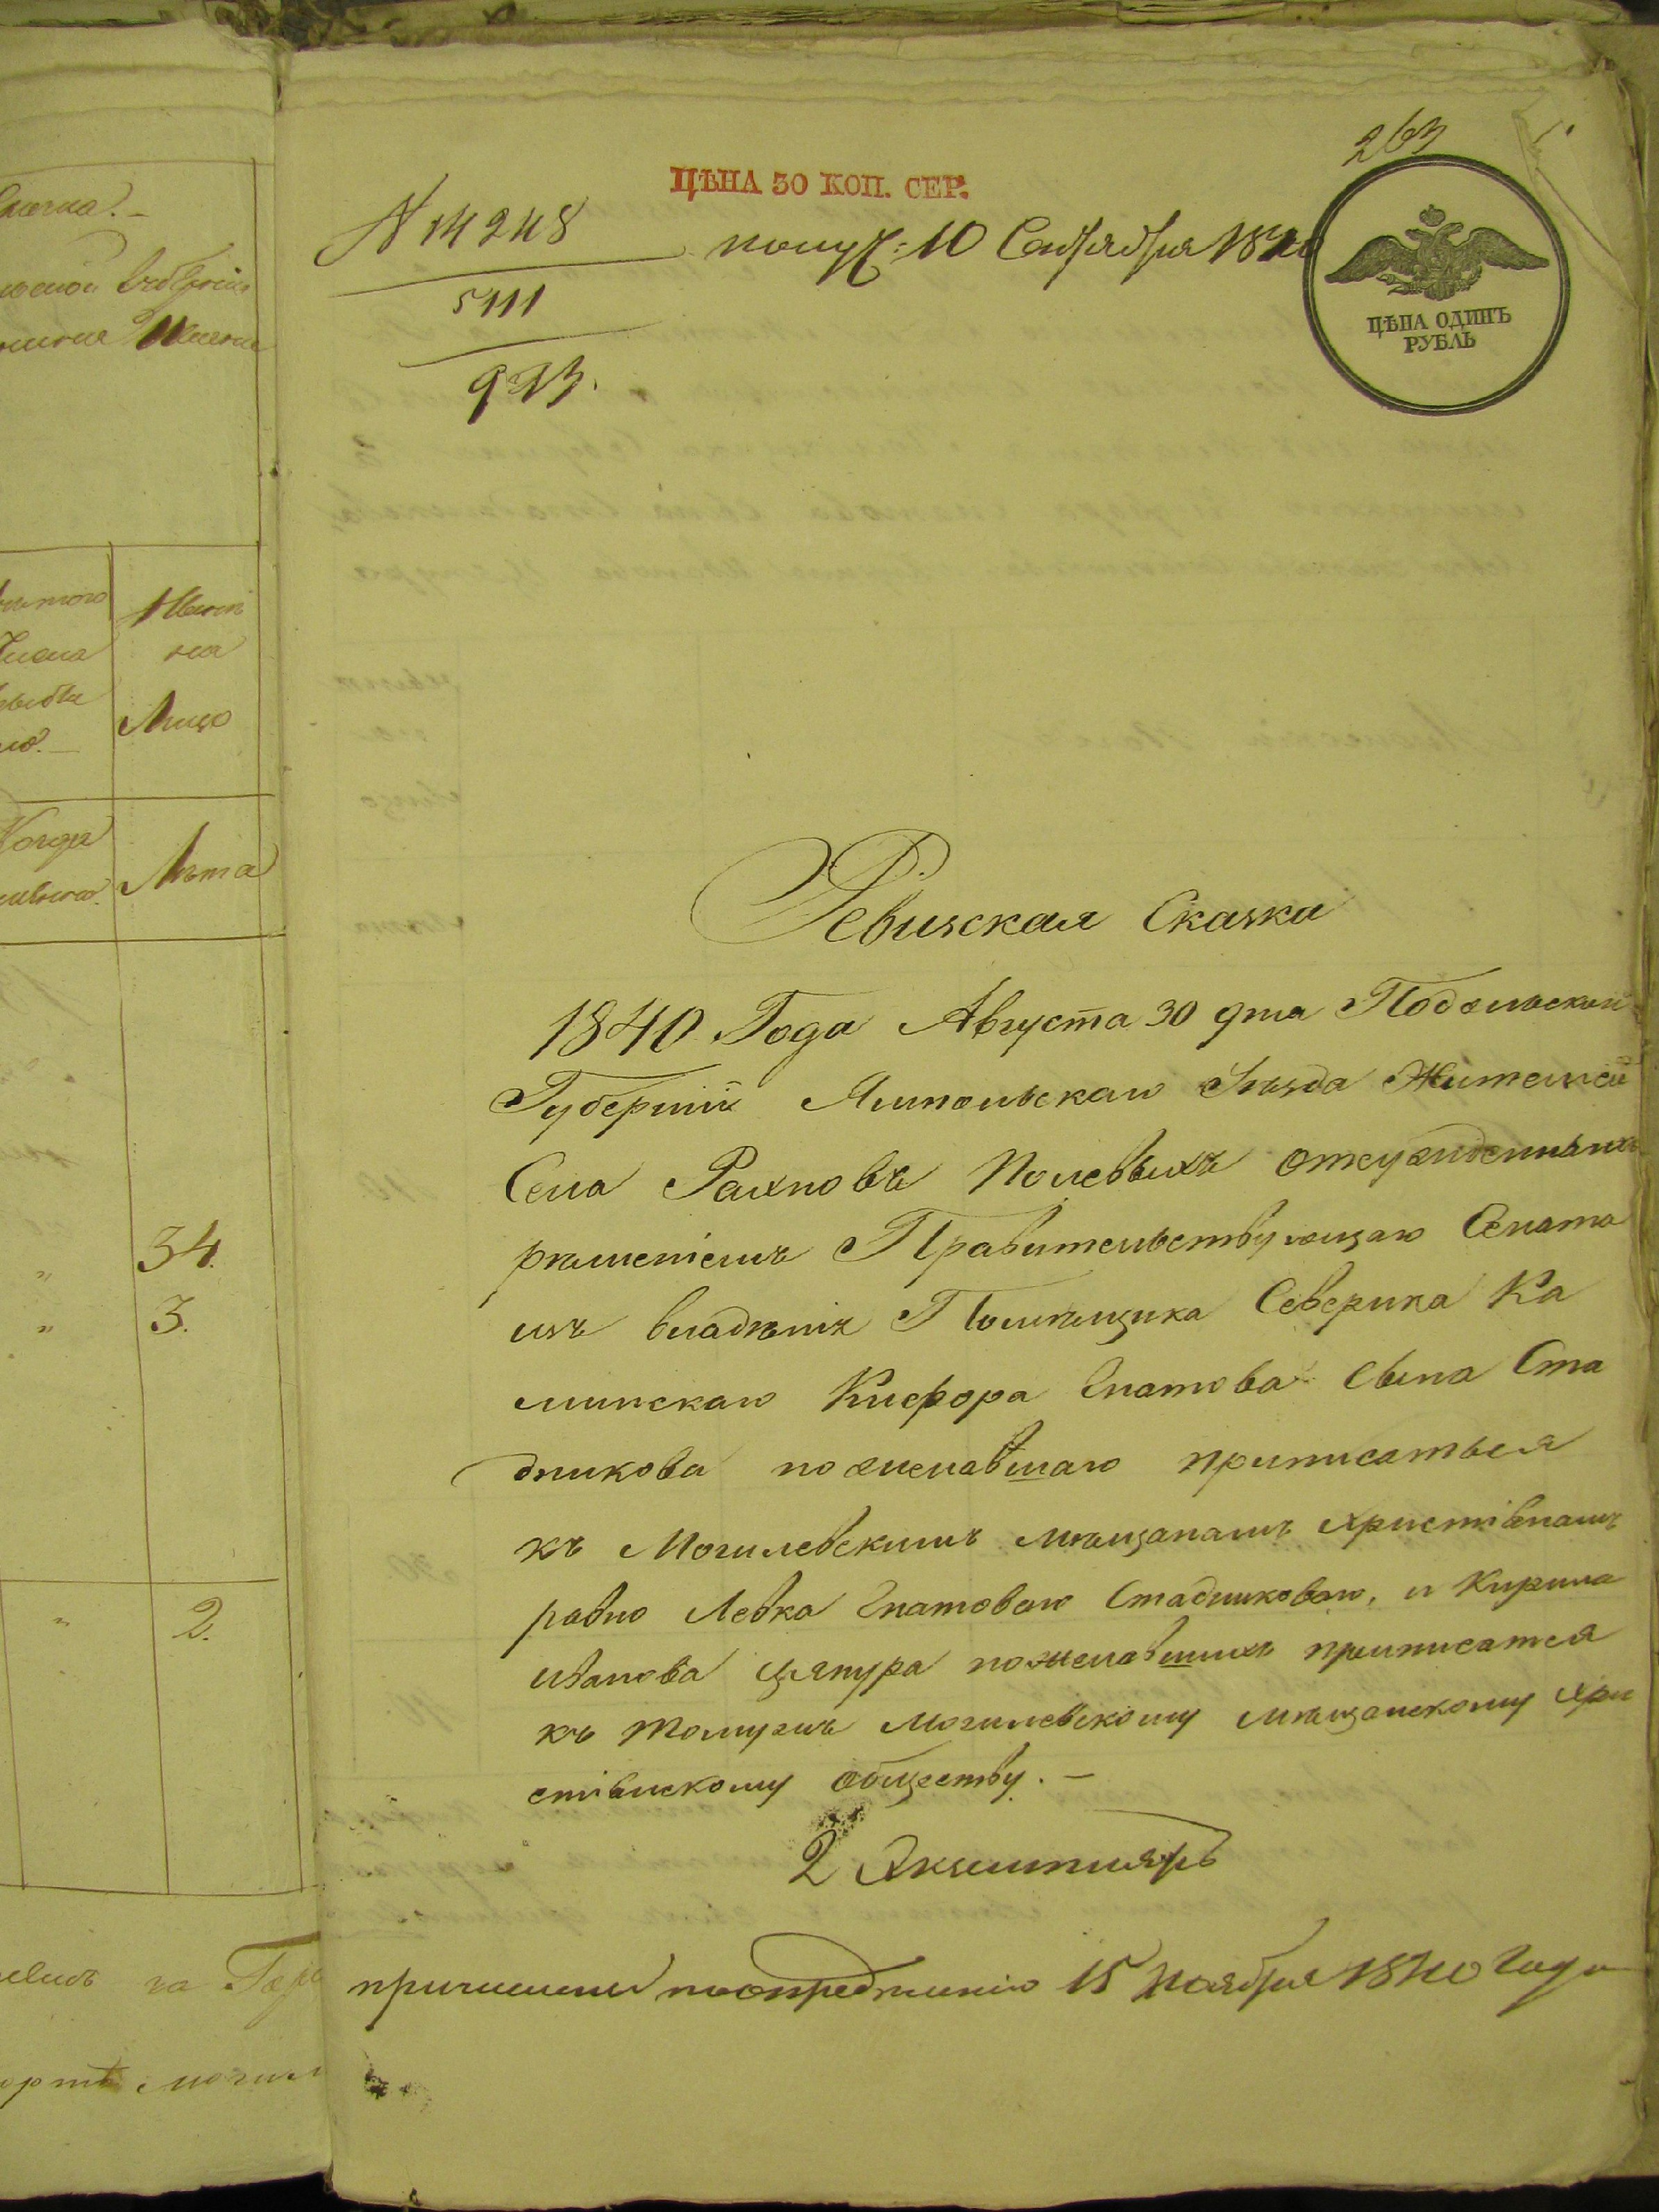 263
ЦѢНА 30 КОП. СЕР.
N 14248
получ: 10 Сентября 1840
ЦѢНА ОДИНЪ
РУБЛЬ
5111
923.
Ревизская Сказка
1840 Года Августа 30 дня Подольской
Губерніи Ямпольскаго Уѣзда Жителей
Села Рахновъ Полевыхъ отсужденныхъ
рѣшеніемъ Правительствующаго Сената
изъ владѣнія Помѣщика Северина Ка
минскаго Кифора Игнатова сына Ста
дникова пожелавшаго приписаться
къ Могилевскимъ мѣщанамъ христіанамъ
равно Левка Игнатоваго Стадниковаго, и Кирила
Иванова Цяпура пожелавшихъ приписатся
къ томужъ Могилевскому мѣщанскому хри
стіанскому обществу. —
2 Экземпляръ
причислены по опредѣленію 15 Ноября 1840 года
на
Лицо
Лѣта
34.
3.
2.